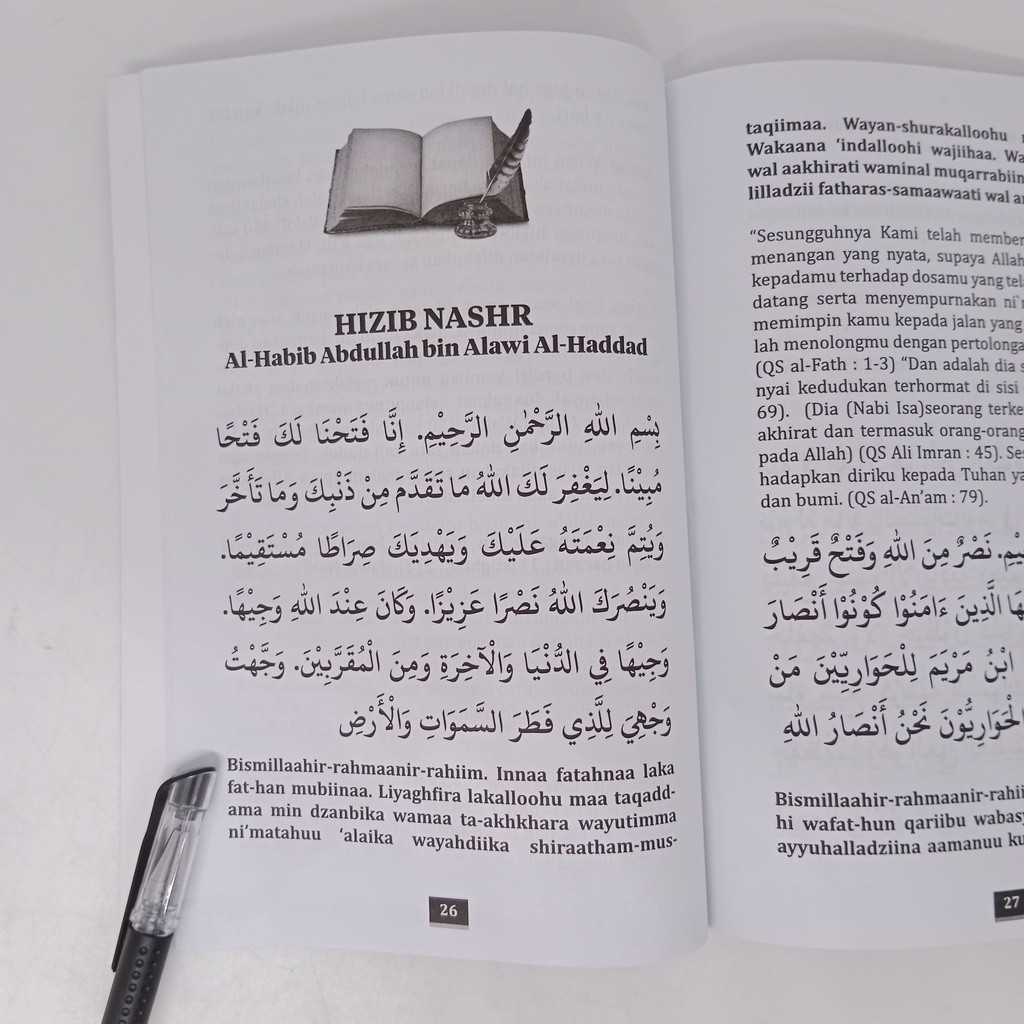 HIZIB NASHR
Al-Habib Abdullah bin Alawi Al-Haddad
بِسْمِ اللهِ الرَّحْمٰنِ الرَّحِيْمِ. إِنَّا فَتَحْنَا لَكَ فَتْحًا
مُبِيْنًا. لِيَغْفِرَ لَكَ اللهُ مَا تَقَدَّمَ مِنْ ذَنْبِكَ وَمَا تَأَخَّرَ
وَيُتِمَّ نِعْمَتَهُ عَلَيْكَ وَيَهْدِيَكَ صِرَاطًا مُسْتَقِيْمًا.
وَيَنْصُرَكَ اللهُ نَصْرًا عَزِيْزًا. وَكَانَ عِنْدَ اللهِ وَجِيْهًا.
وَجِيْهًا فِي الدُّنْيَا وَالْآخِرَةِ وَمِنَ الْمُقَرَّبِيْنَ. وَجَّهْتُ
وَجْهِيَ لِلَّذِي فَطَرَ السَّمَوَاتِ وَالْأَرْضِ
Bismillaahir-rahmaanir-rahiim. Innaa fatahnaa laka
fat-han mubiinaa. Liyaghfira lakalloohu maa taqadd-
ama min dzanbika wamaa ta-akhkhara wayutimma
ni'matahuu 'alaika wayahdiika shiraatham-mus-
26
taqiimaa. Wayan-shurakalloohu
Wakaana 'indalloohi wajiihaa.
wal aakhirati waminal muqarrabiin
lilladzii fatharas-samaawaati wal
"Sesungguhnya Kami telah
menangan yang nyata, supaya Allah
kepadamu terhadap dosamu yang
datang serta menyempurnakan
memimpin kamu kepada jalan yang
lah menolongmu dengan
(QS al-Fath : 1-3) "Dan adalah dia
nyai kedudukan terhormat di sisi
69). (Dia (Nabi Isa)seorang
akhirat dan termasuk
pada Allah) (QS Ali Imran : 45).
hadapkan diriku kepada Tuhan
dan bumi. (QS al-An'am : 79).
نَصْرٌ مِنَ اللهِ وَفَتْحٌ قَرِيْبٌ
الَّذِينَ ءَامَنُوْا كُوْنُوْا أَنْصَارَ
ابْنُ مَرْيَمَ لِلْحَوَارِيِّيْنَ مَنْ
الْحَوَارِيُّوْنَ نَحْنُ أَنْصَارُ اللهِ
hi wafat-hun qariibu
ayyuhalladziina aamanuu
27